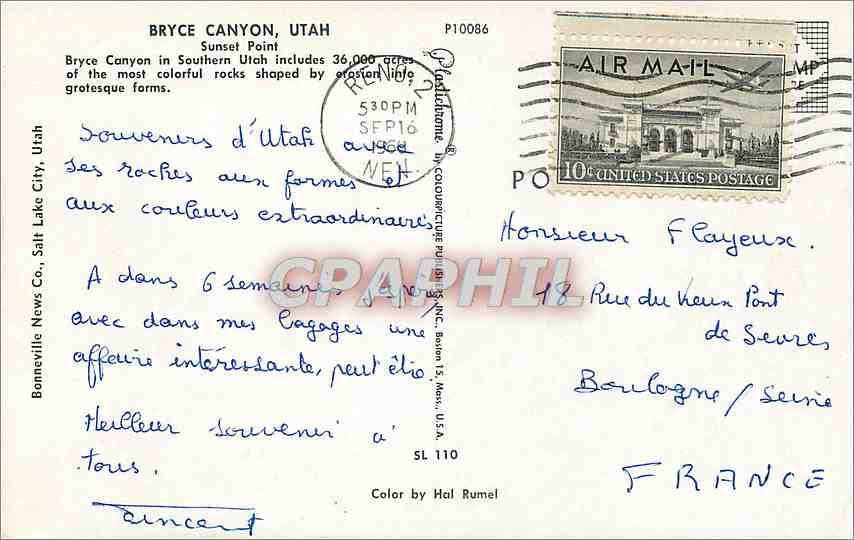 BRYCE CANYON, UTAH
Sunset Point
Bryce Canyon in Southern Utah includes 36,000 acres
of the most colorful rocks shaped by erosion into
grotesque forms.
P10086
Bonneville News Co., Salt Lake City, Utah
Souvenirs d'Utah avec
ses roches aux formes et
aux couleurs extraordinaires.
A dans 6 semaines j'espère,
avec dans mes bagages une
affaire intéressante, peut être.
Meilleur souvenir a'
tous.
Vincent
Plastichrome ® by COLOURPICTURE PUBLISHERS, INC., Boston 15, Mass., U.S.A.
SL 110
Color by Hal Rumel
RENO, 2
5 30 PM
SEP 16
NEV.
AIR MAIL
10¢ UNITED STATES POSTAGE
PO
Monsieur Flayeux.
18 Rue du Vieux Pont
de Sevres
Boulogne / Seine
FRANCE
CPAPHIL